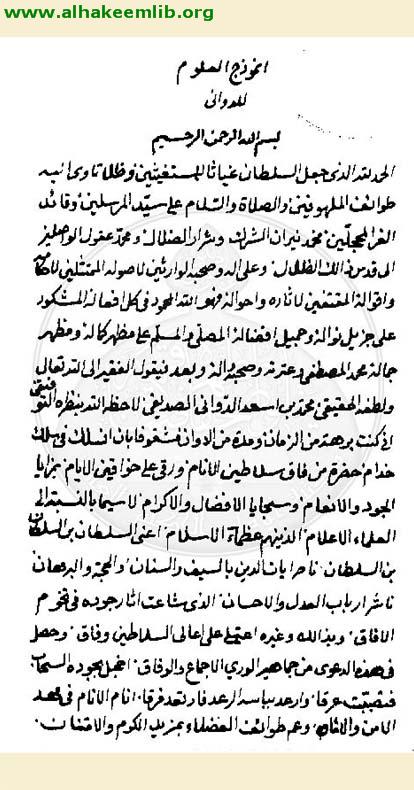 www.alhakeemlib.org
انموذج العلوم
للدوانى
بسم الله الرحمن الرحيم
الحمد لله الذى جعل السلطان غياثا للمستغيثين وظلا تاوى اليه
طوائف الملهوفين والصلاة والسلام على سيد المرسلين وقائد
الغر المحجلين محمد نيران الشرك وشرار الضلال ومحمد عقول
المقدس ذلك الظلال وعلى اله وصحبه الوارثين لاصوله الممتثلين لاحكامه
واقواله المقتفين لاثاره واحواله فهو الله المحمود فى كل افعاله المشكور
على جزيل نواله وجميل افضاله المصلى والمسلم على مظهر كماله ومظهر
جماله محمد المصطفى وعترته وصحبه واله وبعد فيقول الفقير الى الله تعالى
ولطفه الحقيقى محمد بن اسعد الدوانى الصديقى لاحظه الله بنظره التوفيقى
انى كنت برهة من الزمان ومدة من الاوان مشغوفا بان انسلك فى سلك
خدام حضرة من فاق سلاطين الانام ورقى على خواقين الايام بمزايا
الجود والانعام وسجايا الافضال والاكرام لاسيما بالنسبة الى
العلماء الاعلام الذين هم عظماء الاسلام اعنى السلطان بن السلطان
بن السلطان ناصر ايات الدين بالسيف والسنان والحجة والبرهان
ناشر ارباب العدل والاحسان الذى شاعت اثار جوده فى تخوم
الافاق وبذالله وغيره اعتم على اعالى السلاطين وفاق وحصل
فى هذه الدعوى من جماهير الورى الاجماع والوفاق اخجل بجوده السحاب
فتصببت عرقا وارعد بباسه الرعد فارتعد فرقا انام الانام فى مهد
الامن والامان وعم طوائف الفضلاء بمزيد الكرم والامتنان